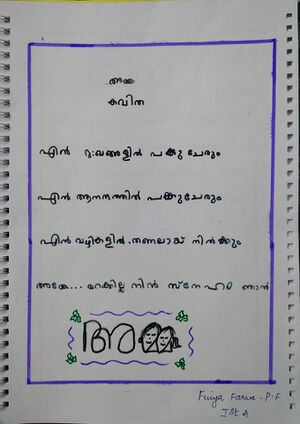 അമ്മ
കവിത
എൻ ദു:ഖങ്ങളിൽ പങ്കു ചേരും
എൻ ആനന്ദത്തിൻ പങ്കുചേരും
എൻ വഴികളിൽ തണലായ് നിൽക്കും
അമ്മേ... മറക്കില്ല നിൻ സ്നേഹം ഞാൻ
അമ്മ
P.F
Ist A